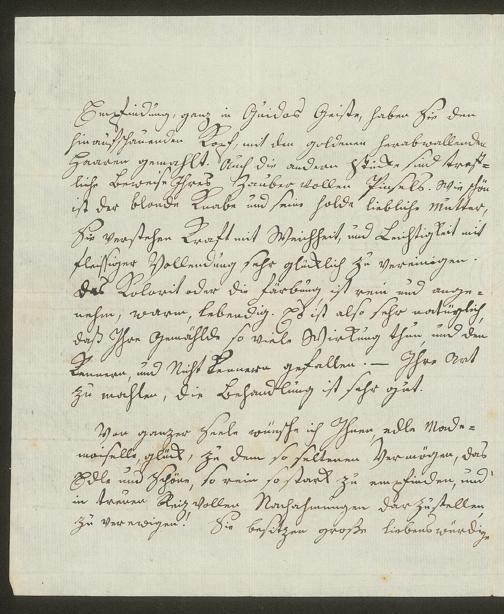 Empfindung, ganz in Guidos Geiste, haben Sie den
hinaufschauenden Kopf, mit den goldenen herabwallenden
Haaren gemahlt. Auch die andern Stücke sind treff-
liche Beweise Ihres Zauber vollen Pinsels. Wie schön
ist der blonde Knabe und seine holde liebliche Mutter,
Sie verstehen Kraft mit Weichheit, und Leichtigkeit mit
fleissiger Vollendung sehr glüklich zu vereinigen.
das Kolorit oder die Färbung ist rein und ange-
nehm, warm, lebendig. Es ist also sehr natürlich,
daß Ihre Gemählde so viele Wirkung thun, und den
Kennern, und Nicht Kennern gefallen. — Ihre Art
zu mahlen, die Behandlung ist sehr gut.
Von ganzer Seele wünsche ich Ihnen, edle Made-
moiselle, glük, zu dem so seltenen Vermögen, das
Edle und Schöne, so rein, so stark zu empfinden, und
in treuen Reizvollen Nachahmungen darzustellen,
zu verewigen! Sie besitzen große liebenswürdige